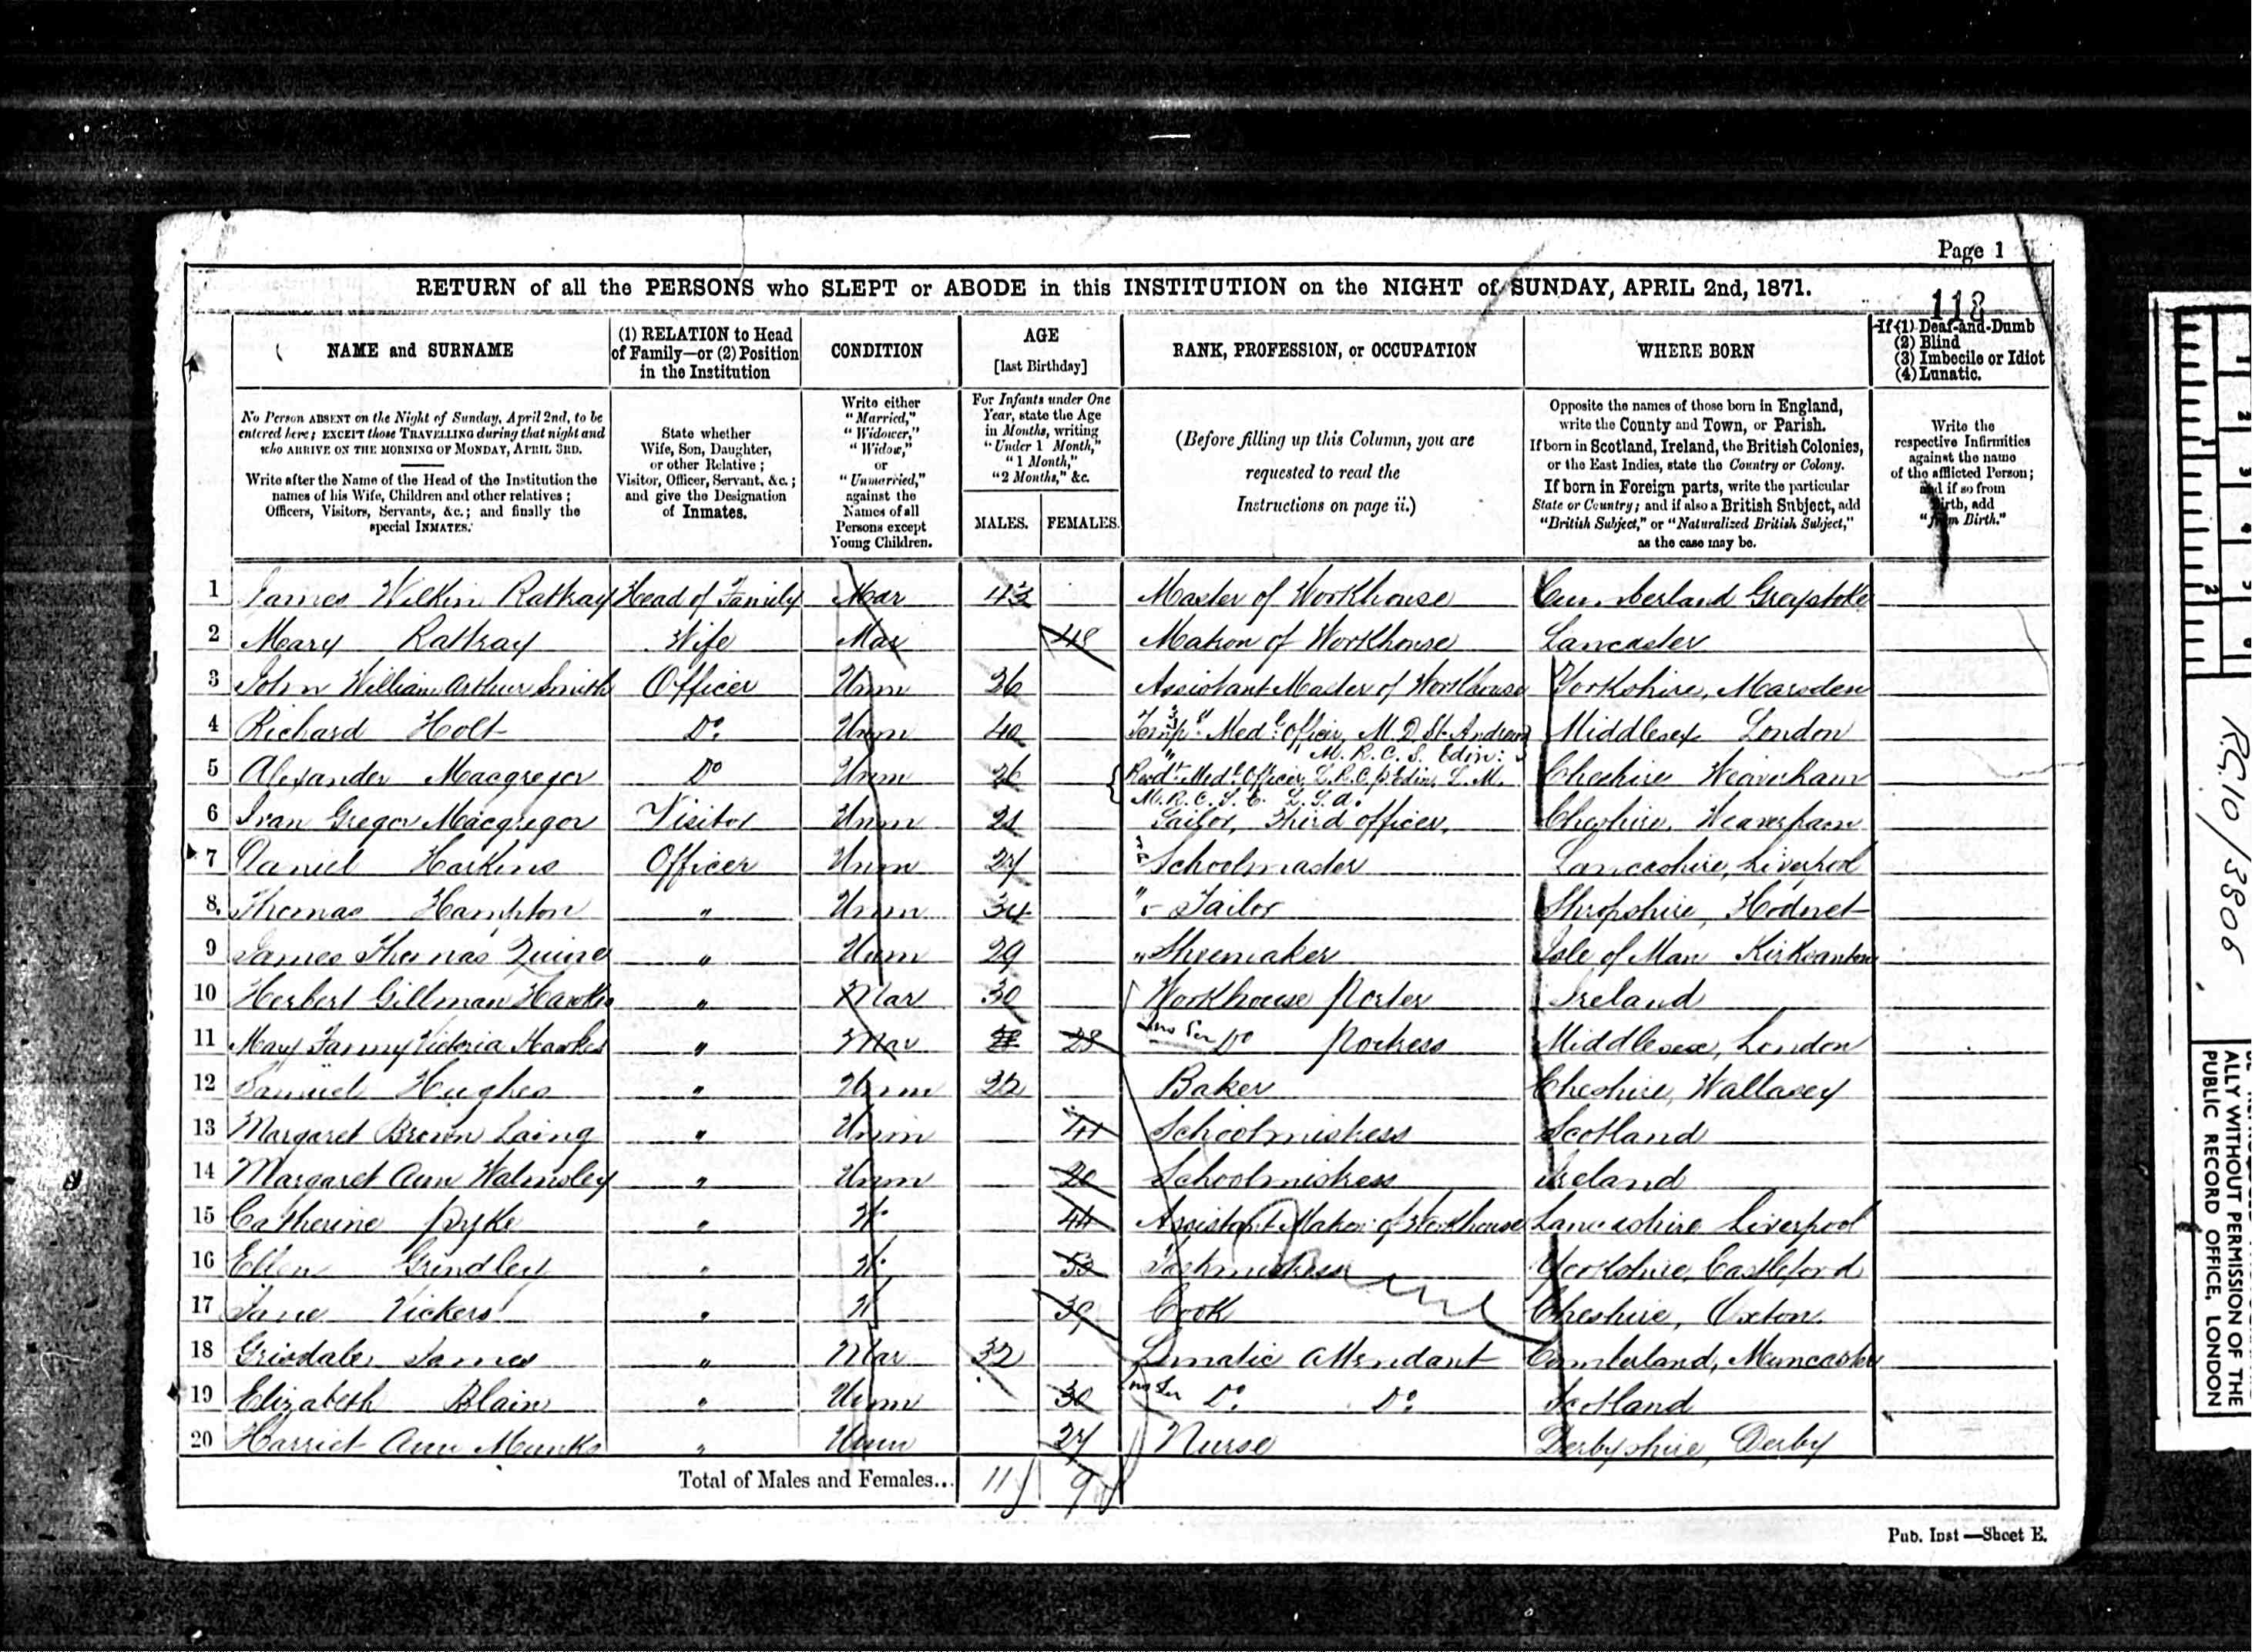 Page 1
RETURN of all the PERSONS who SLEPT or ABODE in this INSTITUTION on the NIGHT of SUNDAY, APRIL 2nd, 1871.
118
NAME and SURNAME
(1) RELATION to Head
of Family—or (2) Position
in the Institution
CONDITION
AGE
[last Birthday]
RANK, PROFESSION, or OCCUPATION
WHERE BORN
If (1) Deaf-and-Dumb
(2) Blind
(3) Imbecile or Idiot
(4) Lunatic.
No Person ABSENT on the Night of Sunday, April 2nd, to be
entered here; EXCEPT those TRAVELLING during that night and
who ARRIVE ON THE MORNING OF MONDAY, APRIL 3RD.
Write after the Name of the Head of the Institution the
names of his Wife, Children and other relatives;
Officers, Visitors, Servants, &c.; and finally the
special INMATES.
State whether
Wife, Son, Daughter,
or other Relative;
Visitor, Officer, Servant, &c.;
and give the Designation
of Inmates.
Write either
"Married,"
"Widower,"
"Widow,"
or
"Unmarried,"
against the
Names of all
Persons except
Young Children.
For Infants under One
Year, state the Age
in Months, writing
"Under 1 Month,"
"1 Month,"
"2 Months," &c.
MALES. FEMALES.
(Before filling up this Column, you are
requested to read the
Instructions on page ii.)
Opposite the names of those born in England,
write the County and Town, or Parish.
If born in Scotland, Ireland, the British Colonies,
or the East Indies, state the Country or Colony.
If born in Foreign parts, write the particular
State or Country; and if also a British Subject, add
"British Subject," or "Naturalized British Subject,"
as the case may be.
Write the
respective Infirmities
against the name
of the afflicted Person;
and if so from
Birth, add
"from Birth."
1 James Wilkin Rattray Head of Family Mar 43 Master of Workhouse Cumberland Greystoke
2 Mary Rattray Wife Mar 48 Matron of Workhouse Lancaster
3 John William Arthur Smith Officer Unm 26 Assistant Master of Workhouse Yorkshire, Marsden
4 Richard Holt Do Unm 40 Med. Officer, M.D. St. Andrews Middlesex London
M.R.C.S. Edin:
5 Alexander Macgregor Do Unm 26 Resdt. Med. Officer, L.R.C.P. Edin. L.M. Cheshire Weaverham
M.R.C.S.E. L.S.A.
6 Ivan Gregor Macgregor Visitor Unm 21 Sailor, Third officer, Cheshire, Weaverham
7 Daniel Harkins Officer Unm 27 Schoolmaster Lancashire, Liverpool
8 Thomas Hampton " Unm 34 Tailor Shropshire, Hodnet
9 James Thomas Quine " Unm 29 " Shoemaker Isle of Man
10 Herbert Gillman Hawkes " Mar 30 Workhouse Porter Ireland
11 Mary Fanny Victoria Hawkes " Mar 28 Do Portress Middlesex, London
12 Samuel Hughes " Unm 22 Baker Cheshire, Wallasey
13 Margaret Brown Laing " Unm 41 Schoolmistress Scotland
14 Margaret Ann Walmsley " Unm 20 Schoolmistress Ireland
15 Catherine Pyke " W. 44 Assistant Matron of Workhouse Lancashire Liverpool
16 Ellen Grindley " W. 53 Taskmistress Yorkshire, Castleford
17 Jane Vickers " W 39 Cook Cheshire, Oxton.
18 Grisdale James " Mar 32 Lunatic Attendant Cumberland, Muncaster
19 Elizabeth Blain " Unm 30 Do. Do. Scotland
20 Harriet Ann Munks " Unm 27 Nurse Derbyshire, Derby
Total of Males and Females... 11 9
Pub. Inst—Sheet E.
R.G. 10/3806
ALLY WITHOUT PERMISSION OF THE
PUBLIC RECORD OFFICE, LONDON